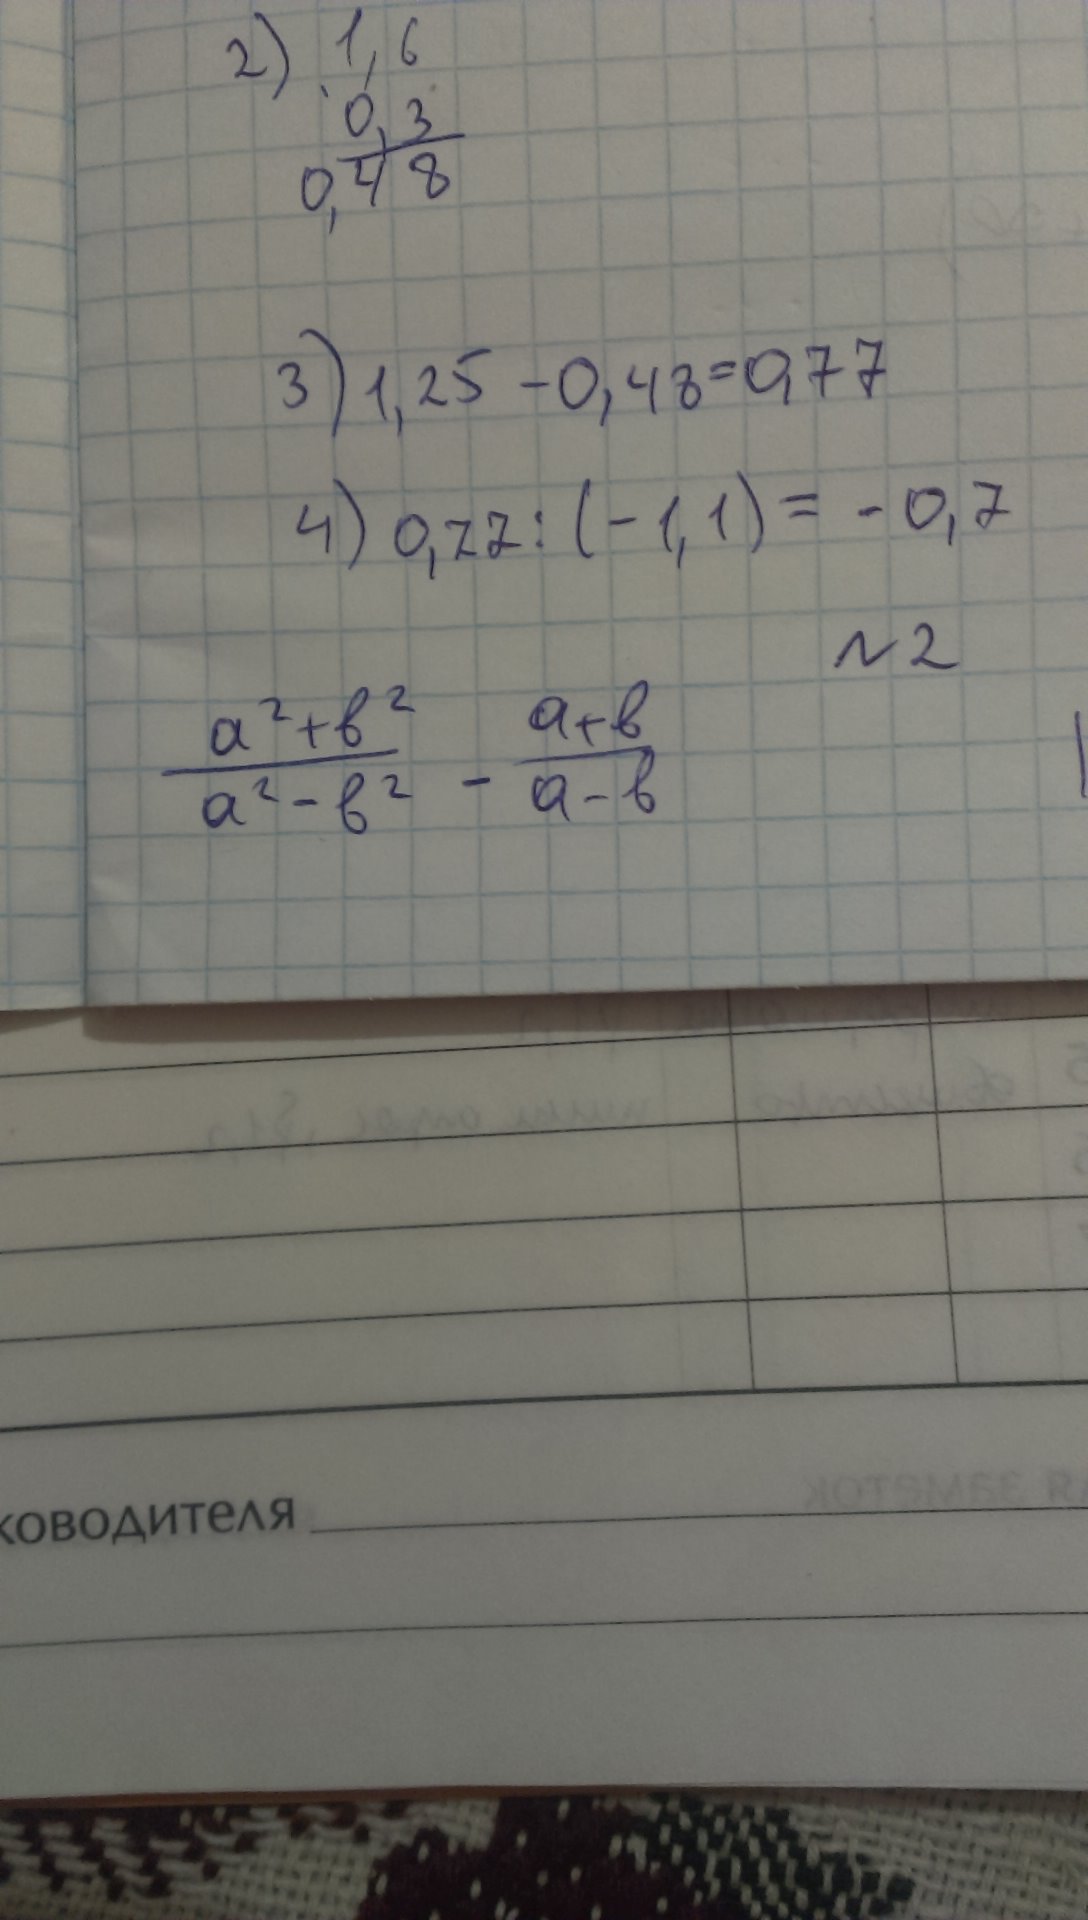 2) 1,6
0,3
0,48
3) 1,25 - 0,48 = 0,77
4) 0,77 : (-1,1) = - 0,7
№2
a²+b² / a²-b² - a+b / a-b
ководителя